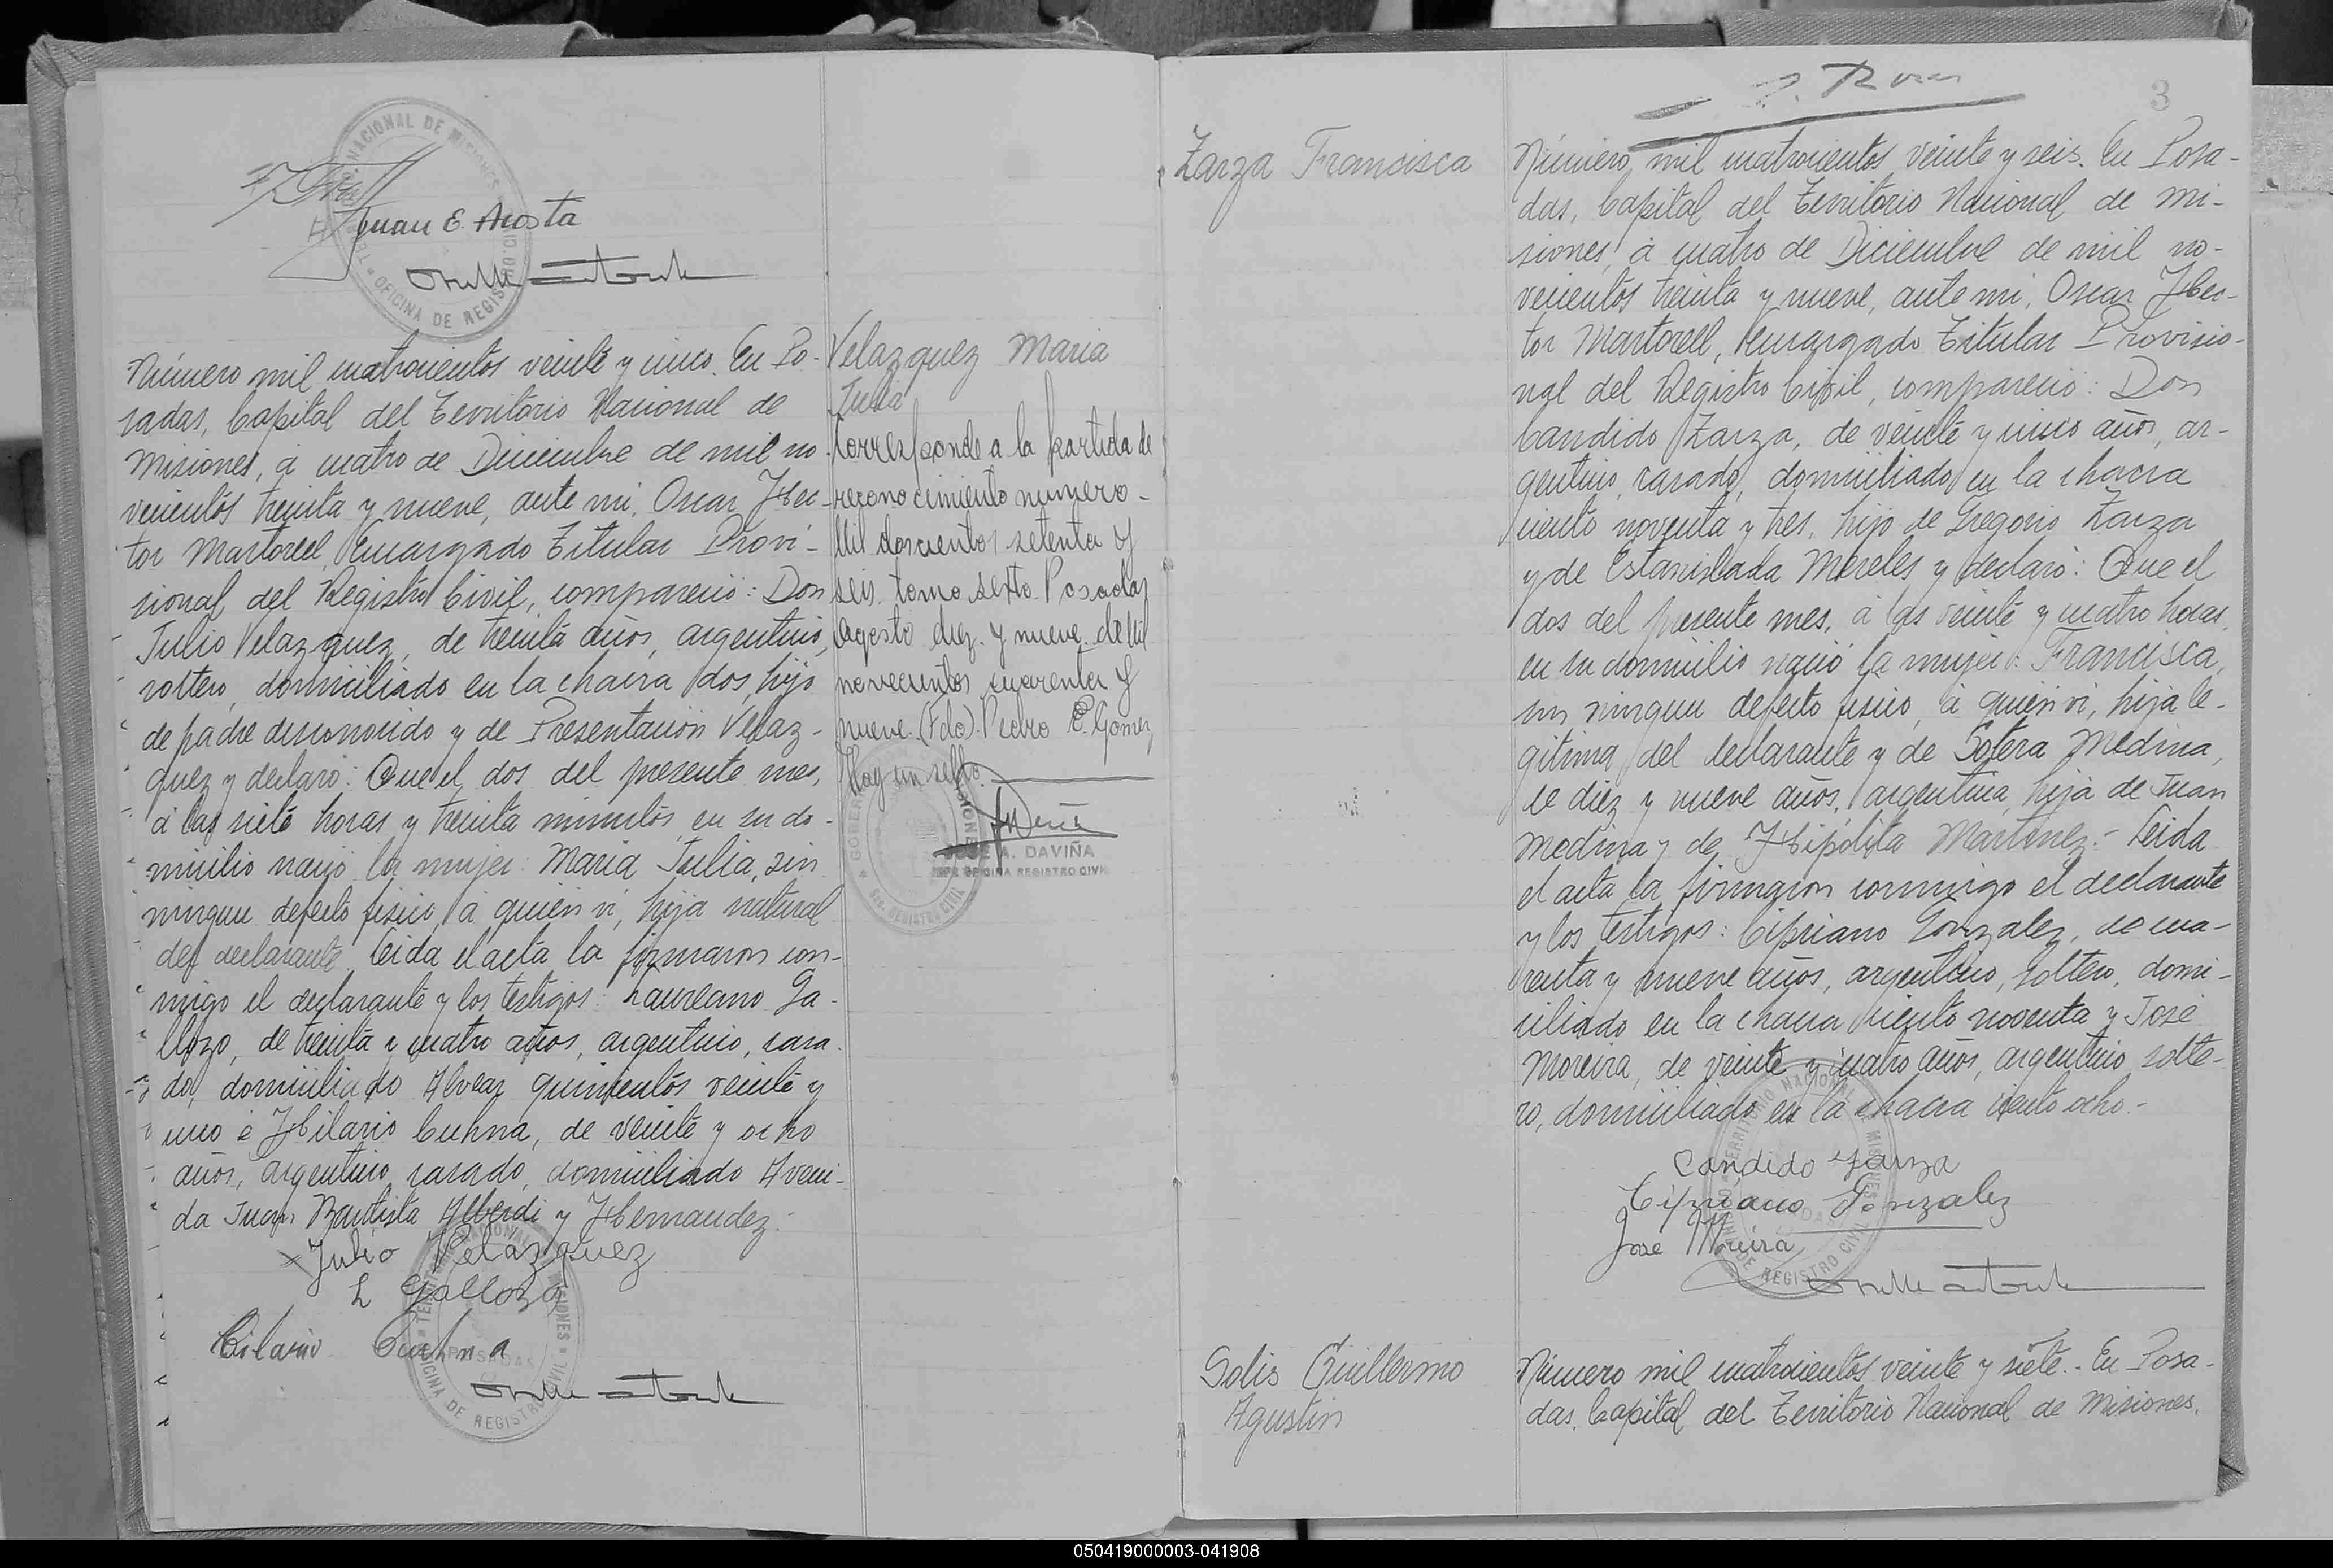 Juan E. Acosta
Número mil cuatrocientos veinte y cinco. En Po-
sadas, Capital del Territorio Nacional de
Misiones, á cuatro de Diciembre de mil no-
vecientos treinta y nueve, ante mi, Oscar Hec-
tor Martorell, Encargado Titular Provi-
sional del Registro Civil, compareció: Don
Julio Velazquez, de treinta años, argentino,
soltero, domiciliado en la chacra dos, hijo
de padre desconocido y de Presentación Velaz-
quez y declaró: Que el dos del presente mes,
á las siete horas y treinta minutos en su do-
micilio nació la mujer: Maria Julia, sin
ningun defecto fisico, á quien vi, hija natural
del declarante. Leida el acta la firmaron con-
migo el declarante y los testigos: Laureano Ga-
llozo, de treinta y cuatro años, argentino, casa-
do, domiciliado Alvear quinientos veinte y
uno é Hilario Cuhna, de veinte y ocho
años, argentino, casado, domiciliado Aveni-
da Juan Bautista Alberdi y Hernandez.-
Julio Velazquez
L Gallozo
Cilario Cuhna
Velazquez Maria
Julia
Corresponde a la partida de
reconocimiento numero-
Mil doscientos setenta y
seis tomo sexto Posadas
Agosto diez y nueve de Mil
novecientos cuarenta y
nueve. (Fdo). Pedro E. Gomez
Hay un sello.
JOSE A. DAVIÑA
JEFE OFICINA REGISTRO CIVIL
3
Zarza Francisca
Número mil cuatrocientos veinte y seis. En Posa-
das, Capital del Territorio Nacional de Mi-
siones, á cuatro de Diciembre de mil no-
vecientos treinta y nueve, ante mi, Oscar Hec-
tor Martorell, Encargado Titular Provisio-
nal del Registro Civil, compareció: Don
Candido Zarza, de veinte y cinco años, ar-
gentino, casado, domiciliado en la chacra
ciento noventa y tres, hijo de Gregorio Zarza
y de Estanislada Mereles y declaró: Que el
dos del presente mes, á las veinte y cuatro horas,
en su domicilio nació la mujer: Francisca,
sin ningun defecto fisico, á quien vi, hija le-
gitima del declarante y de Sotera Medina,
de diez y nueve años, argentina, hija de Juan
Medina y de Hipólita Martinez.- Leida
el acta la firmaron conmigo el declarante
y los testigos: Cipriano Gonzalez, de cua-
renta y nueve años, argentino, soltero, domi-
ciliado en la chacra ciento noventa y José
Moreira, de veinte y cuatro años, argentino, solte-
ro, domiciliado en la chacra ciento ocho.-
Candido Zarza
Cipriano Gonzalez
José Moreira
Solis Guillermo
Agustin
Número mil cuatrocientos veinte y siete.- En Posa-
das, Capital del Territorio Nacional de Misiones,
050419000003-041908